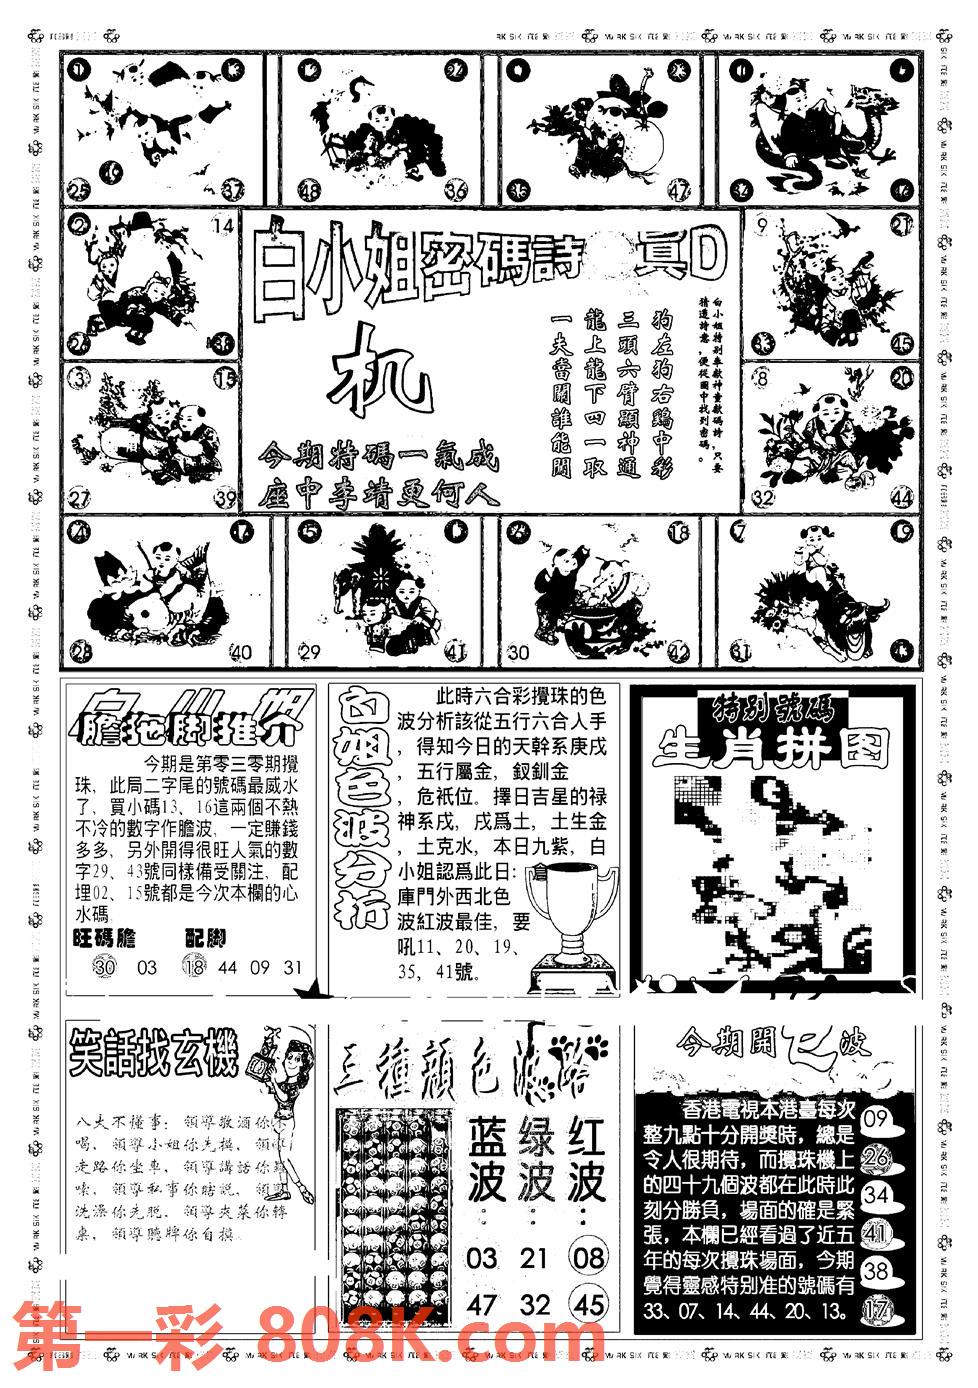 白小姐密碼詩 真D
机
今期特碼一氣成
座中李靖更何人
白小姐特别奉獻神童獻碼詩,只要
猜透詩意,便從圖中找到密碼。
狗左狗右鷄中彩
三頭六臂顯神通
龍上龍下四一取
一夫當關誰能開
25
37
48
36
35
47
2
14
9
21
33
45
3
15
27
39
8
20
32
44
28
40
5
29
41
18
30
42
7
19
31
膽拖脚推介
今期是第零三零期攪
珠，此局二字尾的號碼最威水
了，買小碼13、16這兩個不熱
不冷的數字作膽波，一定賺錢
多多，另外開得很旺人氣的數
字29、43號同樣備受關注，配
埋02、15號都是今次本欄的心
水碼
旺碼膽 配脚
30 03 18 44 09 31
白姐色波分析
此時六合彩攪珠的色
波分析該從五行六合人手
，得知今日的天幹系庚戌
，五行屬金，釵釧金
，危祇位。擇日吉星的禄
神系戊，戌爲土，土生金
，土克水，本日九紫，白
小姐認爲此日：倉
庫門外西北色
波紅波最佳，要
吼11、20、19、
35，41號。
特别號碼
生肖拼图
笑話找玄機
八夫不懂事：領導敬酒你不
喝，領導小姐你先摸，領導
走路你坐車，領導講話你
嗦，領導私事你瞎説，領導
洗澡你先脱，領導夾菜你轉
桌，領導聽牌你自摸。
三種顔色波路
蓝波： 绿波： 红波：
03 21 08
47 32 45
今期開 波
香港電視本港臺每次
整九點十分開獎時，總是
令人很期待，而攪珠機上
的四十九個波都在此時此
刻分勝負，場面的確是緊
張，本欄已經看過了近五
年的每次攪珠場面，今期
覺得靈感特别准的號碼有
33、07、14、44、20、13。
09
26
34
41
38
17
第一彩 808K.com